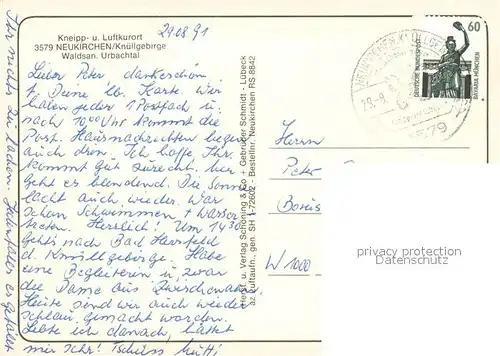 Kneipp- u. Luftkurort
3579 NEUKIRCHEN/Knüllgebirge
Waldsan. Urbachtal
29.08.91
Lieber Peter, dankeschön
f. Deine lb. Karte. Wir
haben jeder 1 Postfach u.
nach 10⁰⁰ Uhr kommt die
Post. Hausnachrichten liegen
auch drin. Ich hoffe, Ihr
kommt gut zurecht. hier
geht es blendend. Die Sonne
lacht auch wieder. War
schon Schwimmen + Wasser
treten. Herrlich! Um 14³⁰
gehts nach Bad Hersfeld
d. Knüllgebirge. Habe
eine Begleiterin u. zwar
die Dame aus Zwischenahn.
Heute sind wir auch wieder
schlau gemacht worden.
Lebte ich danach, hättet
mir sehr! Tschüss Mutti
Ihr nichts zu lachen. Jedenfalls es gefällt
Herst. u. Verlag Schöning & Co + Gebrüder Schmidt - Lübeck
az Luftaufn., gen. SH 1-72602 - Bestellnr. Neukirchen RS 8842
60
DEUTSCHE BUNDESPOST
BAVARIA MÜNCHEN
3579
Herrn
Peter
Borius
W 1000
privacy protection
watermark